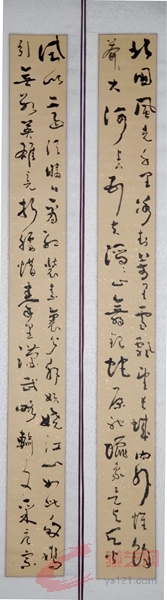 北国風光千里冰封萬里雪飘望长城内外惟餘
莽大河上下顿失滔滔山舞銀蛇原驰蠟象欲与天公
試比高须晴日看红装素裹分外妖娆江山如此多嬌
引無数英雄竞折腰惜秦皇漢武略輸文采唐宗
ya121.com